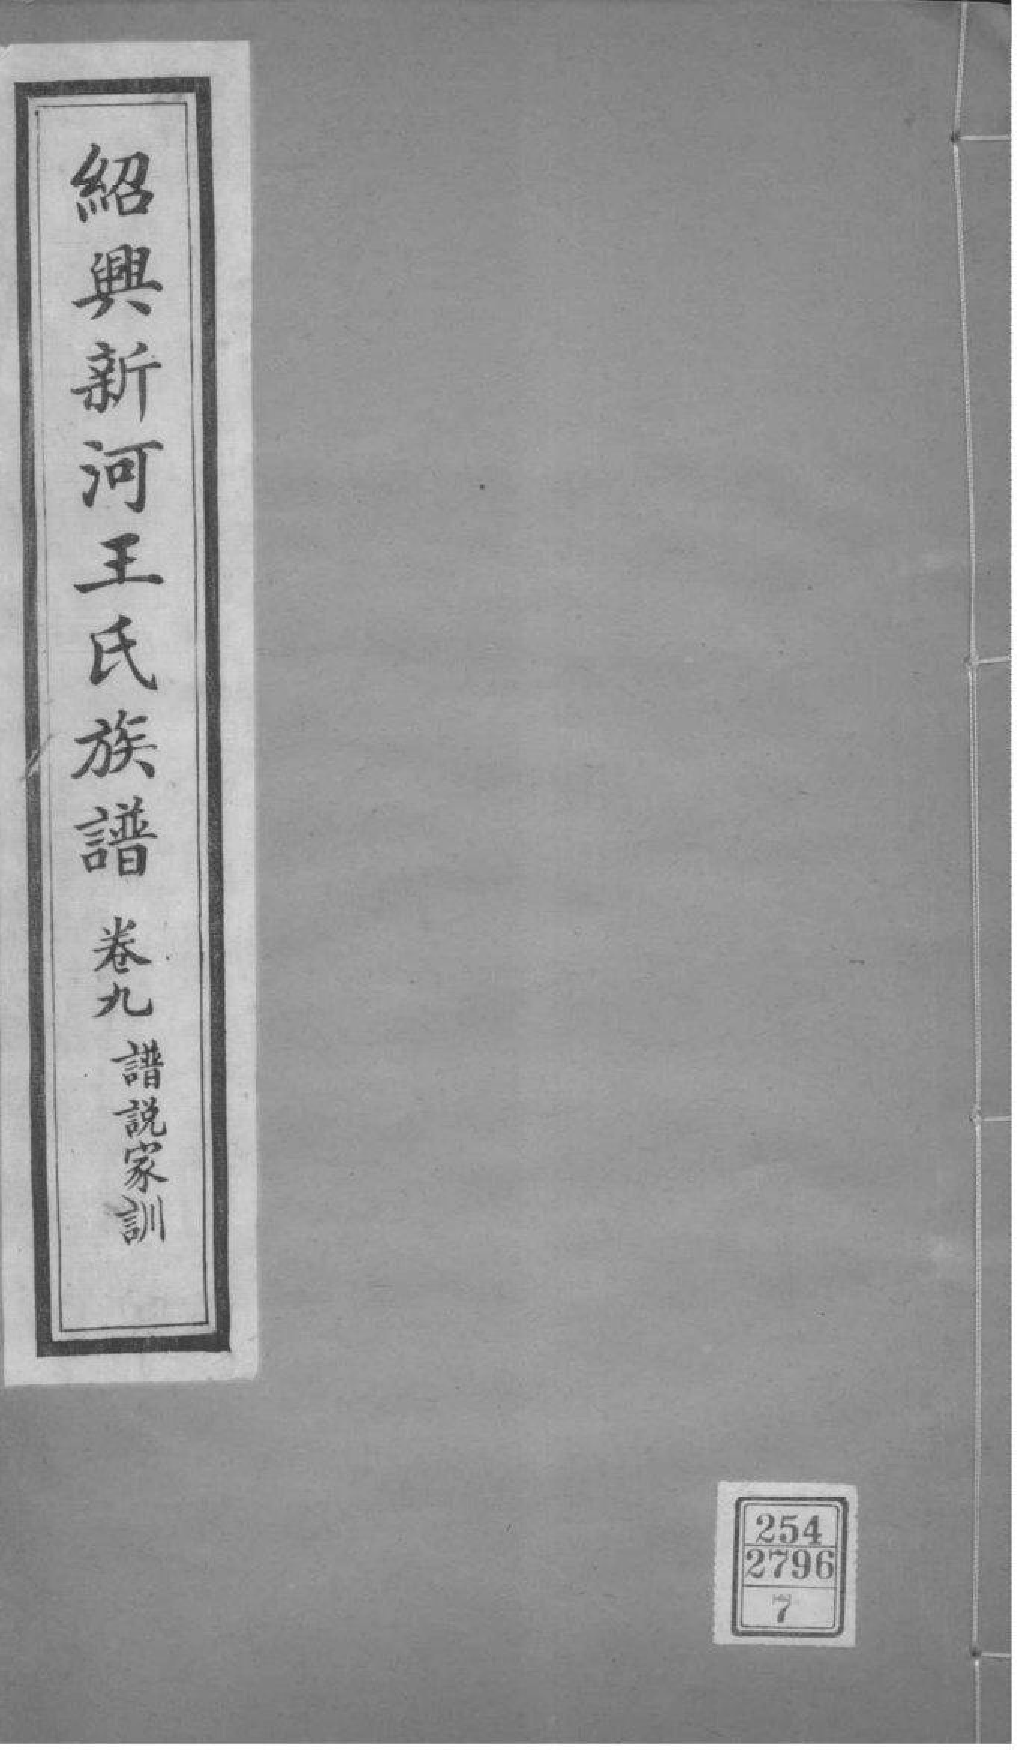 紹興新河王氏族譜 卷九 譜説家訓
254
2796
7